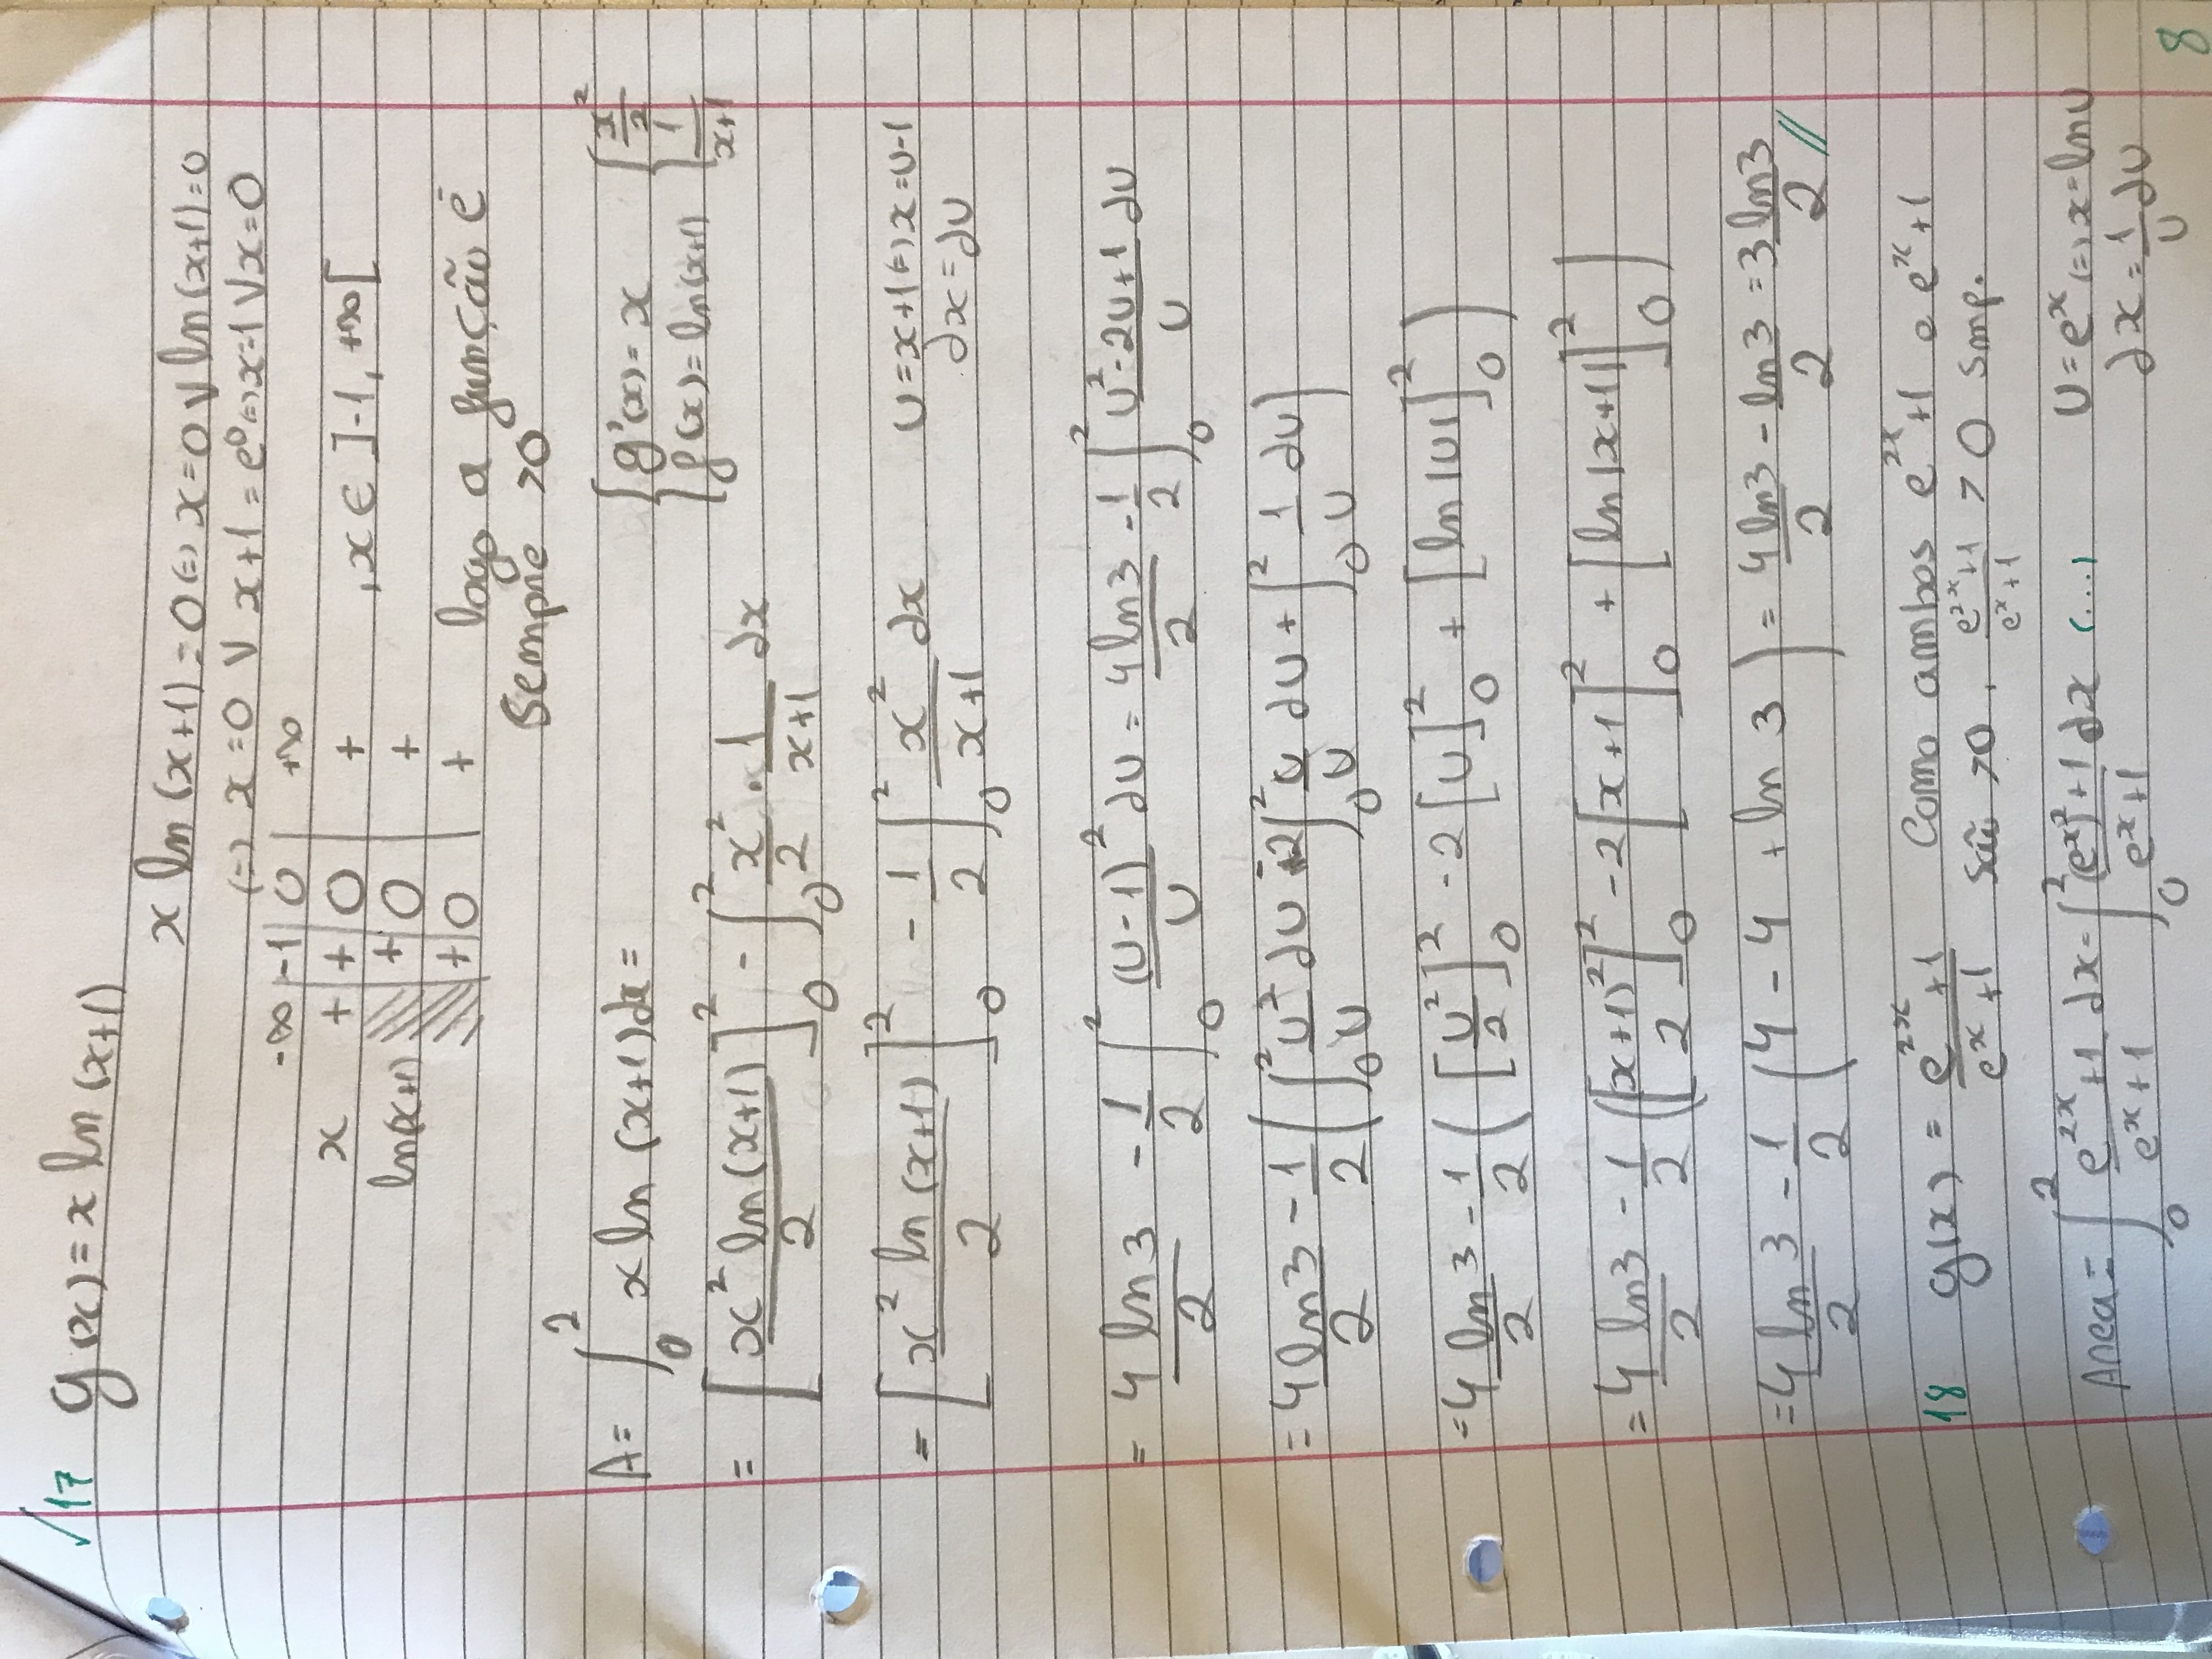 √17 g(x) = x ln (x+1)
x ln (x+1) = 0 (=) x = 0 V ln (x+1) = 0
(=) x = 0 V x+1 = e⁰ (=) x=1 V x = 0
-∞ | -1 | 0 | +∞
x + | + | 0 | + , x ∈ ]-1, +∞[
ln(x+1) + | 0 | +
+ | 0 | + logo a função é
sempre >0
A = ∫₀² x ln (x+1) dx = { g'(x) = x { x²/2
{ f(x) = ln(x+1) { 1/(x+1)
= [x² ln(x+1)/2]₀² - ∫₀² x²/2 · 1/(x+1) dx
= [x² ln (x+1)/2]₀² - 1/2 ∫₀² x²/(x+1) dx U = x+1 (=) x = U-1
dx = dU
= 4 ln 3/2 - 1/2 ∫₀² (U-1)²/U dU = 4 ln 3/2 - 1/2 ∫₀² (U²-2U+1)/U dU
= 4 ln 3/2 - 1/2 ( ∫₀² U²/U dU - 2 ∫₀² U/U dU + ∫₀² 1/U dU )
= 4 ln 3/2 - 1/2 ( [U²/2]₀² - 2 [U]₀² + [ln |U|]₀² )
= 4 ln 3/2 - 1/2 ( [(x+1)²/2]₀² - 2 [x+1]₀² + [ln |x+1|]₀² )
= 4 ln 3/2 - 1/2 ( 4 - 4 + ln 3 ) = 4 ln 3/2 - ln 3/2 = 3 ln 3/2 //
18 g(x) = (e²ˣ+1)/(eˣ+1) Como ambos e²ˣ+1 e eˣ+1
são >0 , (e²ˣ+1)/(eˣ+1) > 0 smp.
Area = ∫₀² (e²ˣ+1)/(eˣ+1) dx = ∫₀² ((eˣ)²+1)/(eˣ+1) dx (...) U = eˣ (=) x = ln U
dx = 1/U dU
8